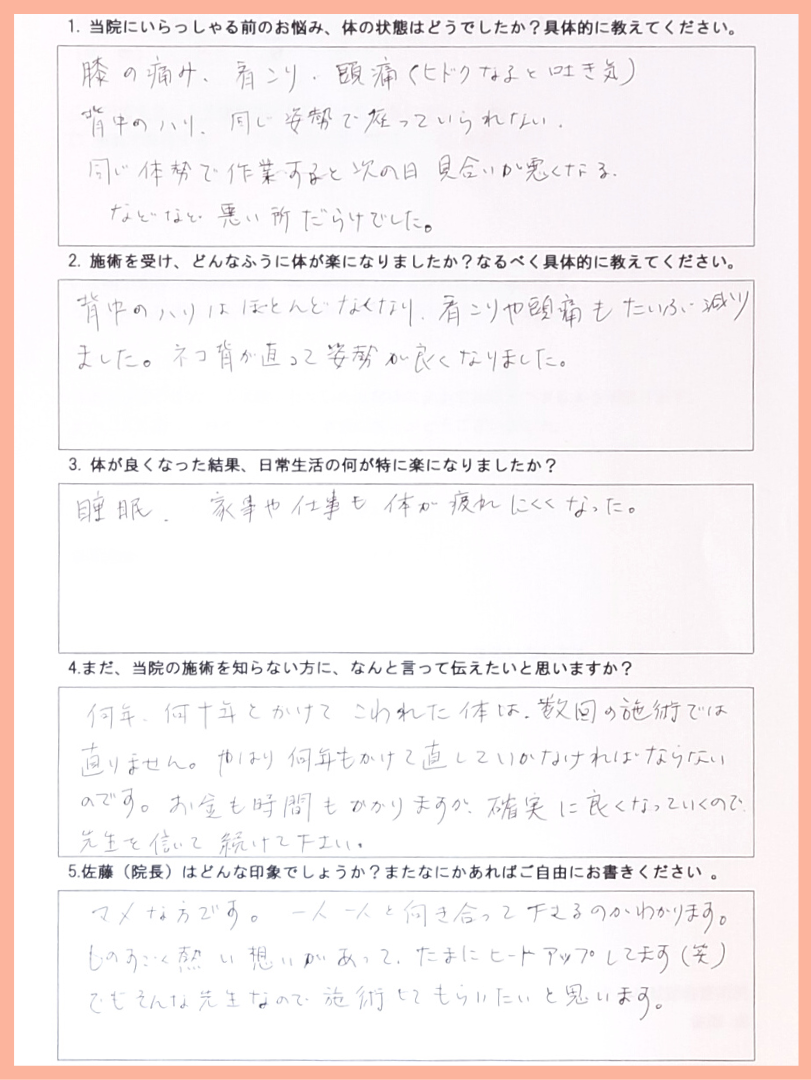 1. 当院にいらっしゃる前のお悩み、体の状態はどうでしたか？具体的に教えてください。
膝の痛み、肩こり、頭痛（ヒドクなると吐き気）
背中のハリ、同じ姿勢で座っていられない、
同じ体勢で作業すると次の日具合いが悪くなる、
などなど悪い所だらけでした。
2. 施術を受け、どんなふうに体が楽になりましたか？なるべく具体的に教えてください。
背中のハリはほとんどなくなり、肩こりや頭痛もだいぶ減り
ました。ネコ背が直って姿勢が良くなりました。
3. 体が良くなった結果、日常生活の何が特に楽になりましたか？
睡眠、家事や仕事も体が疲れにくくなった。
4.まだ、当院の施術を知らない方に、なんと言って伝えたいと思いますか？
何年、何十年とかけてこわれた体は、数回の施術では
直りません。やはり何年もかけて直していかなければならない
のです。お金も時間もかかりますが、確実に良くなっていくので、
先生を信じて続けて下さい。
5.佐藤（院長）はどんな印象でしょうか？またなにかあればご自由にお書きください 。
マメな方です。一人一人と向き合って下さるのがわかります。
ものすごく熱い想いがあって、たまにヒートアップしてます（笑）
でもそんな先生なので施術してもらいたいと思います。